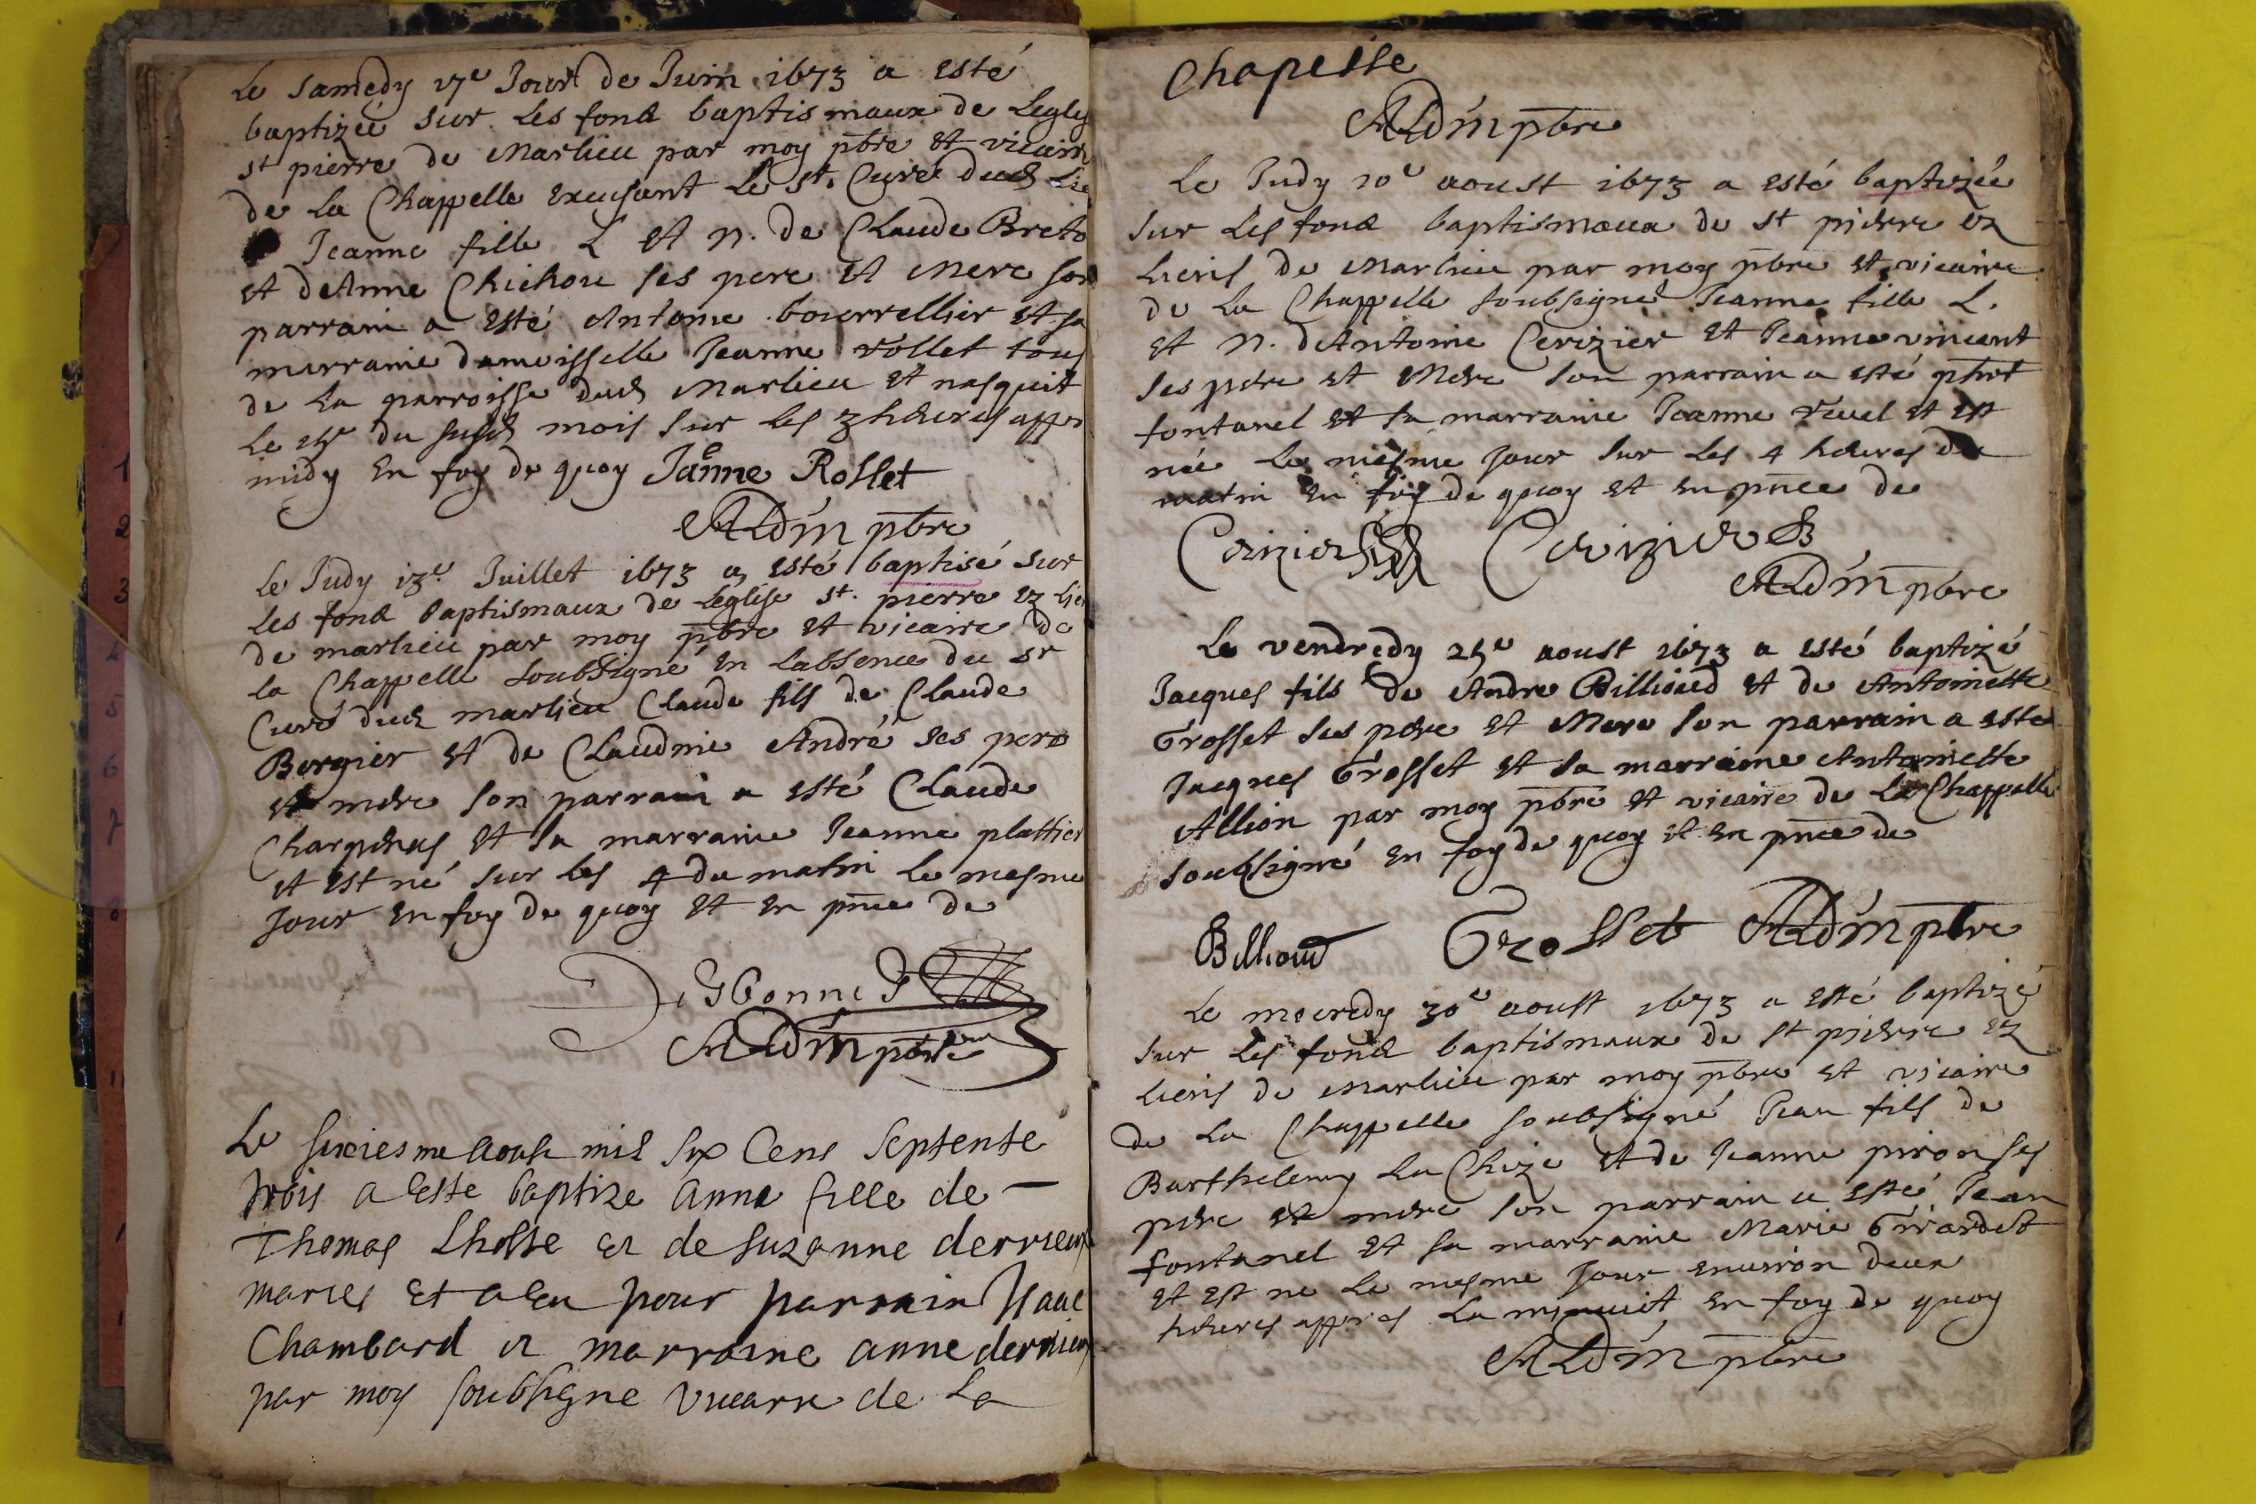 Le samedy 17e Jour de Juin 1673 a esté
baptizée sur les fond baptismaux de Legli
st pierre de Marlieu par moy pbre et vicaire
de la Chappelle excusant le sr. Curé dud Lie
Jeanne fille L et n. de Claude Breto
et dAnne Chichou ses pere et Mere son
parrain a esté Antoine bourrellier et sa
marraine damoisselle Jeanne rollet tous
de la parroisse dud Marlieu et nasquit
Le du susd mois sur les 3 heures appr
midy En foy de quoy Janne Rollet
pbre
Le Judy 13e Juillet 1673 a esté baptisé sur
Les fond baptismaux de Leglise st. pierre ez lie
de marlieu par moy pbre et vicaire de
la Chappelle soubsigné En labsence du sr
Curé dud marlieu Claude fils de Claude
Bergier et de Claudine André ses pere
et mere son parrain a esté Claude
Charpenay et sa marraine Jeanne plattier
et est né sur les 4 du matin le mesme
Jour en foy de quoy et en pnce de
Desbonnes
pbre
Le sixiesme aoust mil six Cens septente
trois a este baptize anne fille de
Thomas Lhoste et de suzanne derrieux
maries et a eu pour parrain Isaac
Chambard et marraine anne derrieux
par moy soubsigne vicaire de La
Chapelle
pbre
Le Judy 10e aoust 1673 a esté baptizée
sur les fond baptismaux de st pierre ez
Liens de Marlieu par moy pbre et vicaire
de La Chappelle soubsigné Jeanne fille L.
et n. dAntoine Cerizier et Jeanne vincent
ses pere et Mere son parrain a esté phet
fontanel et sa marraine Jeanne revel et est
née le mesme Jour sur les 4 heures du
matin en foy de quoy et en pnce de
Cerizier Cerizier
pbre
Le vendredy 25e aoust 1673 a esté baptizé
Jacques fils de Andre Billioud et de Antoinette
Grosset ses pere et Mere son parrain a esté
Jacques Grosset et sa marraine Antoinette
Allion par moy pbre et vicaire de La Chappelle
soubsigné en foy de quoy et en pnce de
Billioud Grosset pbre
Le mecredy 30e aoust 1673 a esté baptizé
sur les fond baptismaux de st pierre ez
Liens de Marlieu par moy pbre et vicaire
de La Chappelle soubsigné Jean fils de
Barthelemy La Chize et de Jeanne piron ses
pere et mere son parrain a esté Jean
fontanel et sa marraine Marie Girardet
et est né le mesme Jour environ deux
heures appres La minuit en foy de quoy
pbre